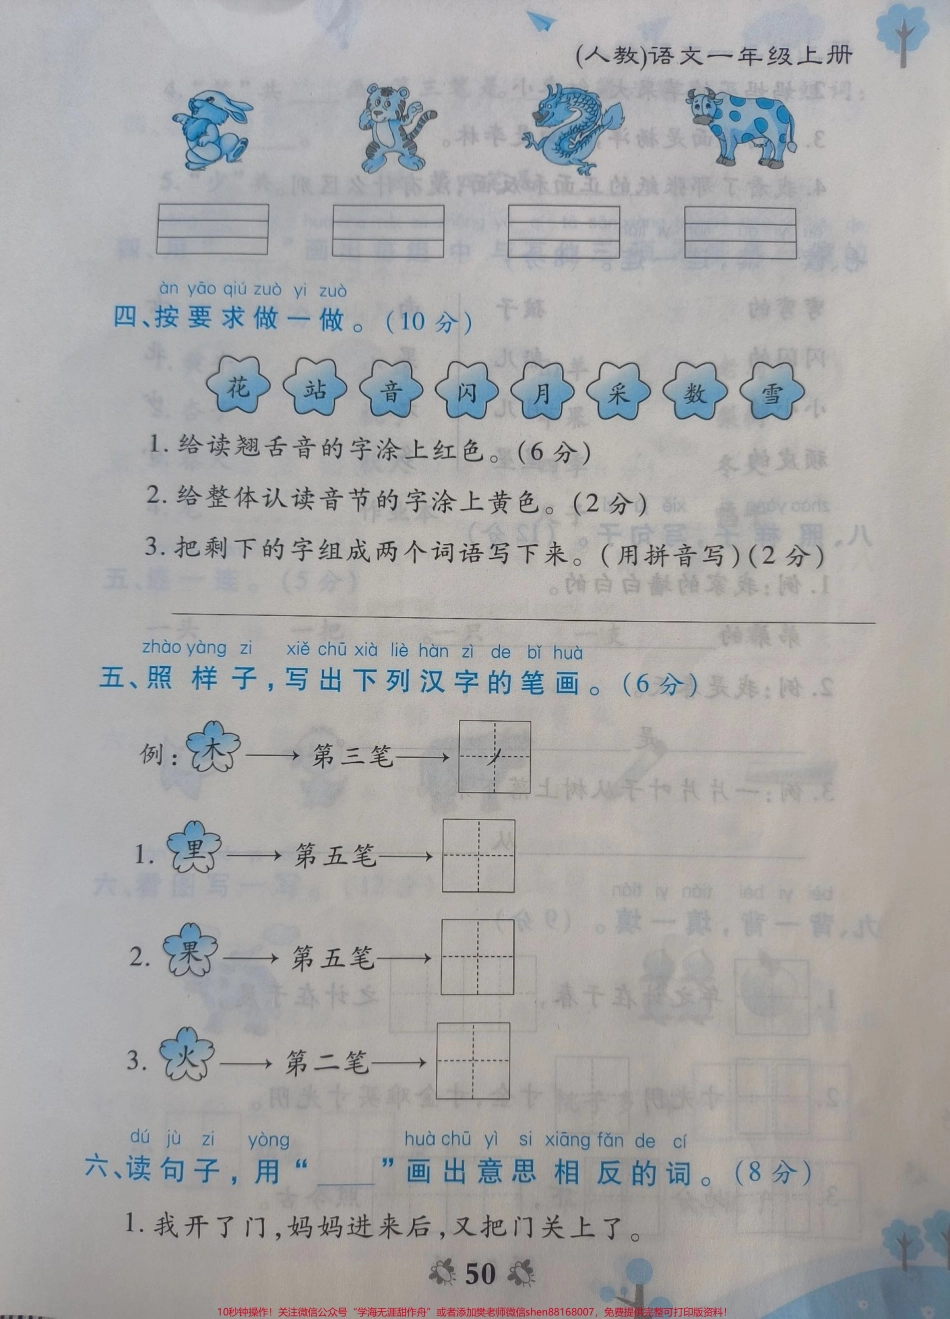 (人教)语文一年级上册
àn yāo qiú zuò yi zuò
四、按要求做一做。(10分)
花 站 音 闪 月 采 数 雪
1.给读翘舌音的字涂上红色。(6分)
2.给整体认读音节的字涂上黄色。(2分)
3.把剩下的字组成两个词语写下来。(用拼音写)(2分)
zhào yàng zi xiě chū xià liè hàn zì de bǐ huà
五、照样子,写出下列汉字的笔画。(6分)
例:木 第三笔 ㇒
1. 里 第五笔
2. 果 第五笔
3. 火 第二笔
dú jù zi yòng huà chū yì si xiāng fǎn de cí
六、读句子,用“___”画出意思相反的词。(8分)
1.我开了门,妈妈进来后,又把门关上了。
50
10秒钟操作!关注微信公众号“学海无涯甜作舟”或者添加樊老师微信shen88168007,免费提供完整可打印版资料!